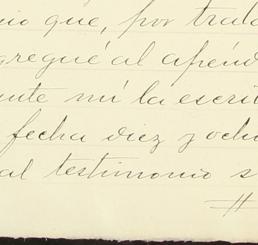 nio que, por trata
gregué al apénd
ante mí la escrit
fecha diez y ocho
al testimonio s